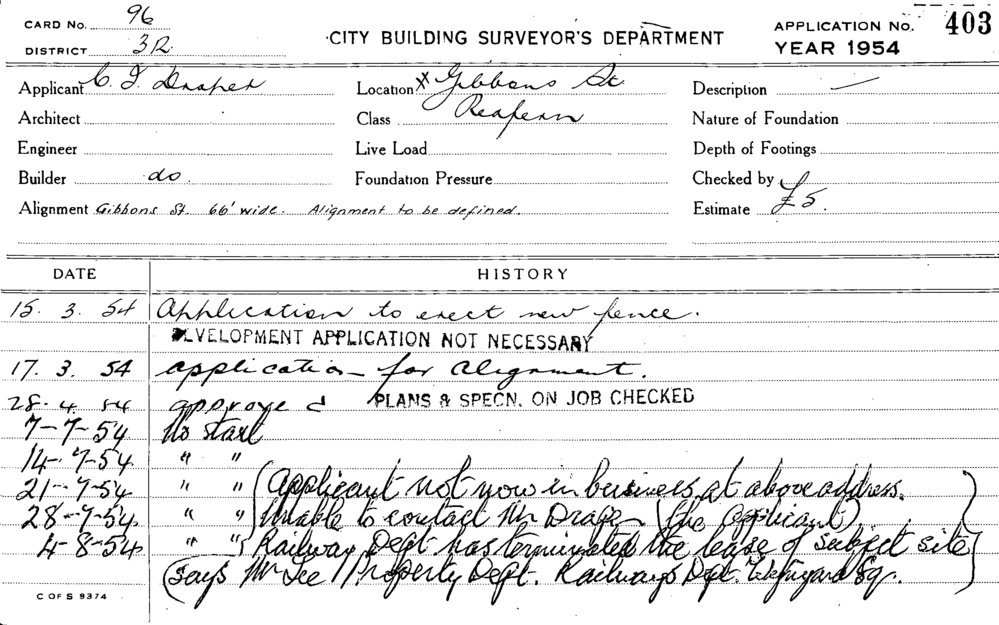 CARD NO. 96
CITY BUILDING SURVEYOR'S DEPARTMENT
APPLICATION NO. 403
DISTRICT 3R
YEAR 1954
Applicant C. J. Draper
Location Gibbons St.
Description —
Architect
Class Redfern
Nature of Foundation
Engineer
Live Load
Depth of Footings
Builder do.
Foundation Pressure
Checked by
Alignment Gibbons St. 66' wide. Alignment to be defined.
Estimate £5.
DATE HISTORY
15. 3. 54 Application to erect new fence.
DEVELOPMENT APPLICATION NOT NECESSARY
17. 3. 54 application for alignment.
28. 4. 54 approved PLANS & SPECN. ON JOB CHECKED
7-7-54 No start
14-7-54 " "
21-7-54 " " (Applicant not now in business at above address.
28-7-54 " " Unable to contact Mr Draper (the applicant)
4-8-54 " " Railway Dept has terminated the lease of subject site
(says Mr Lee Property Dept. Railways Dept. Wynyard Sq.)
C OF S 9374